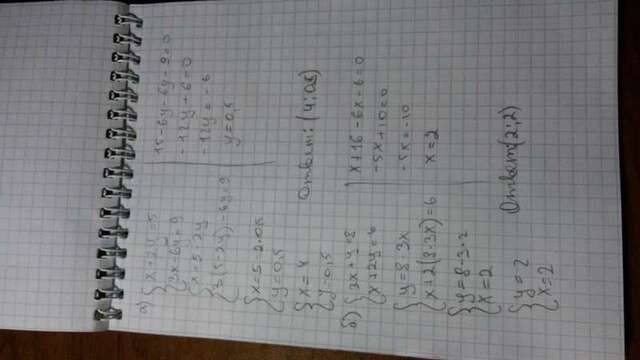 а) { x+2y=5
{ 3x-6y=9
{ x=5-2y
{ 3(5-2y)-6y=9
15-6y-6y-9=0
-12y+6=0
-12y=-6
y=0,5
{ x=5-2·0,5
{ y=0,5
{ x=4
{ y=0,5
Ответ: (4;0,5)
б) { 3x+y=8
{ x+2y=6
{ y=8-3x
{ x+2(8-3x)=6
x+16-6x-6=0
-5x+10=0
-5x=-10
x=2
{ y=8-3·2
{ x=2
{ y=2
{ x=2
Ответ (2;2)